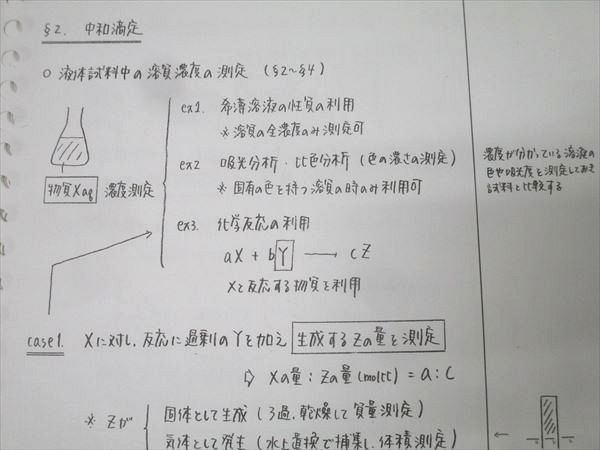 §2. 中和滴定
○ 液体試料中の溶質濃度の測定 (§2~§4)
ex1. 希薄溶液の性質の利用
※溶質の全濃度のみ測定可
ex2 吸光分析・比色分析 (色の濃さの測定)
※固有の色を持つ溶質の時のみ利用可
物質Xaq 濃度測定
ex3. 化学反応の利用
aX + bY → cZ
Xと反応する物質を利用
濃度が分かっている溶液の
色や吸光度を測定しておき
試料と比較する
case1. Xに対し、反応に過剰のYを加え 生成するZの量を測定
⇨ Xの量:Zの量(mol比) = a:c
※ Zが
固体として生成 (ろ過,乾燥して質量測定)
気体として発生 (水上置換で捕集し,体積測定)
←